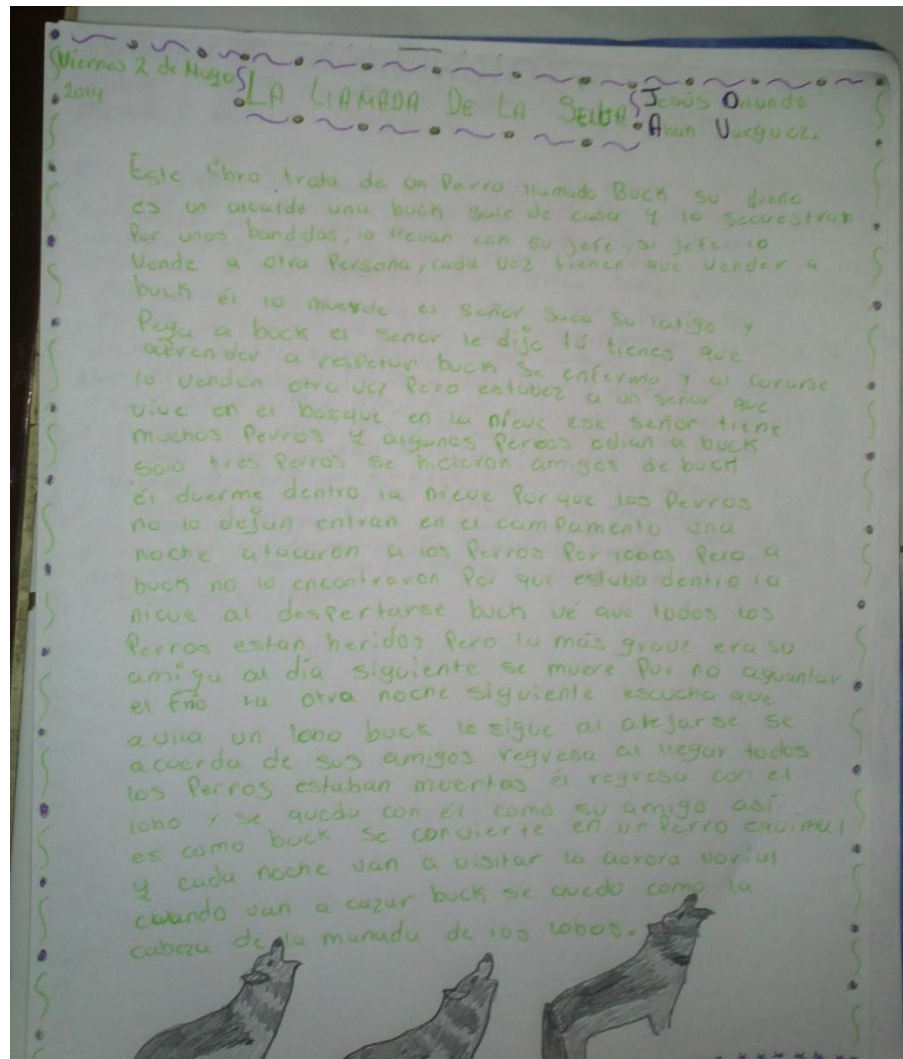 Viernes 2 de Mayo
2014
LA LLAMADA DE LA SELVA
Jesús
Este libro trata de un Perro llamado Buck su dueño
es un alcalde una buck sale de casa y lo secuestran
Por unos bandidos, lo llevan con su jefe, su jefe lo
Vende a otra Persona, cada vez tienen que vender a
buck él lo muerde el señor saca su latigo y
Pega a buck el señor le dijo tú tienes que
aprender a respetar buck se enferma y al curarse
lo venden otra vez Pero estavez a un señor que
vive en el bosque en la nieve ese señor tiene
muchos Perros y algunos Perros odian a buck
solo tres Perros se hicieron amigos de buck
él duerme dentro la nieve Por que los Perros
no lo dejan entran en el campamento una
noche atacaron a los Perros Por lobos Pero a
buck no lo encontraron Por que estaba dentro la
nieve al despertarse buck vé que todos los
Perros estan heridos Pero la más grave era su
amiga al día siguiente se muere Por no aguantar
el frío la otra noche siguiente escucha que
aulla un lobo buck le sigue al alejarse se
acuerda de sus amigos regresa al llegar todos
los Perros estaban muertos él regresa con el
lobo y se queda con él como su amigo así
es como buck se convierte en un Perro
y cada noche van a visitar la aurora
cuando van a cazar buck se quedo como la
cabeza de la manada de los lobos.